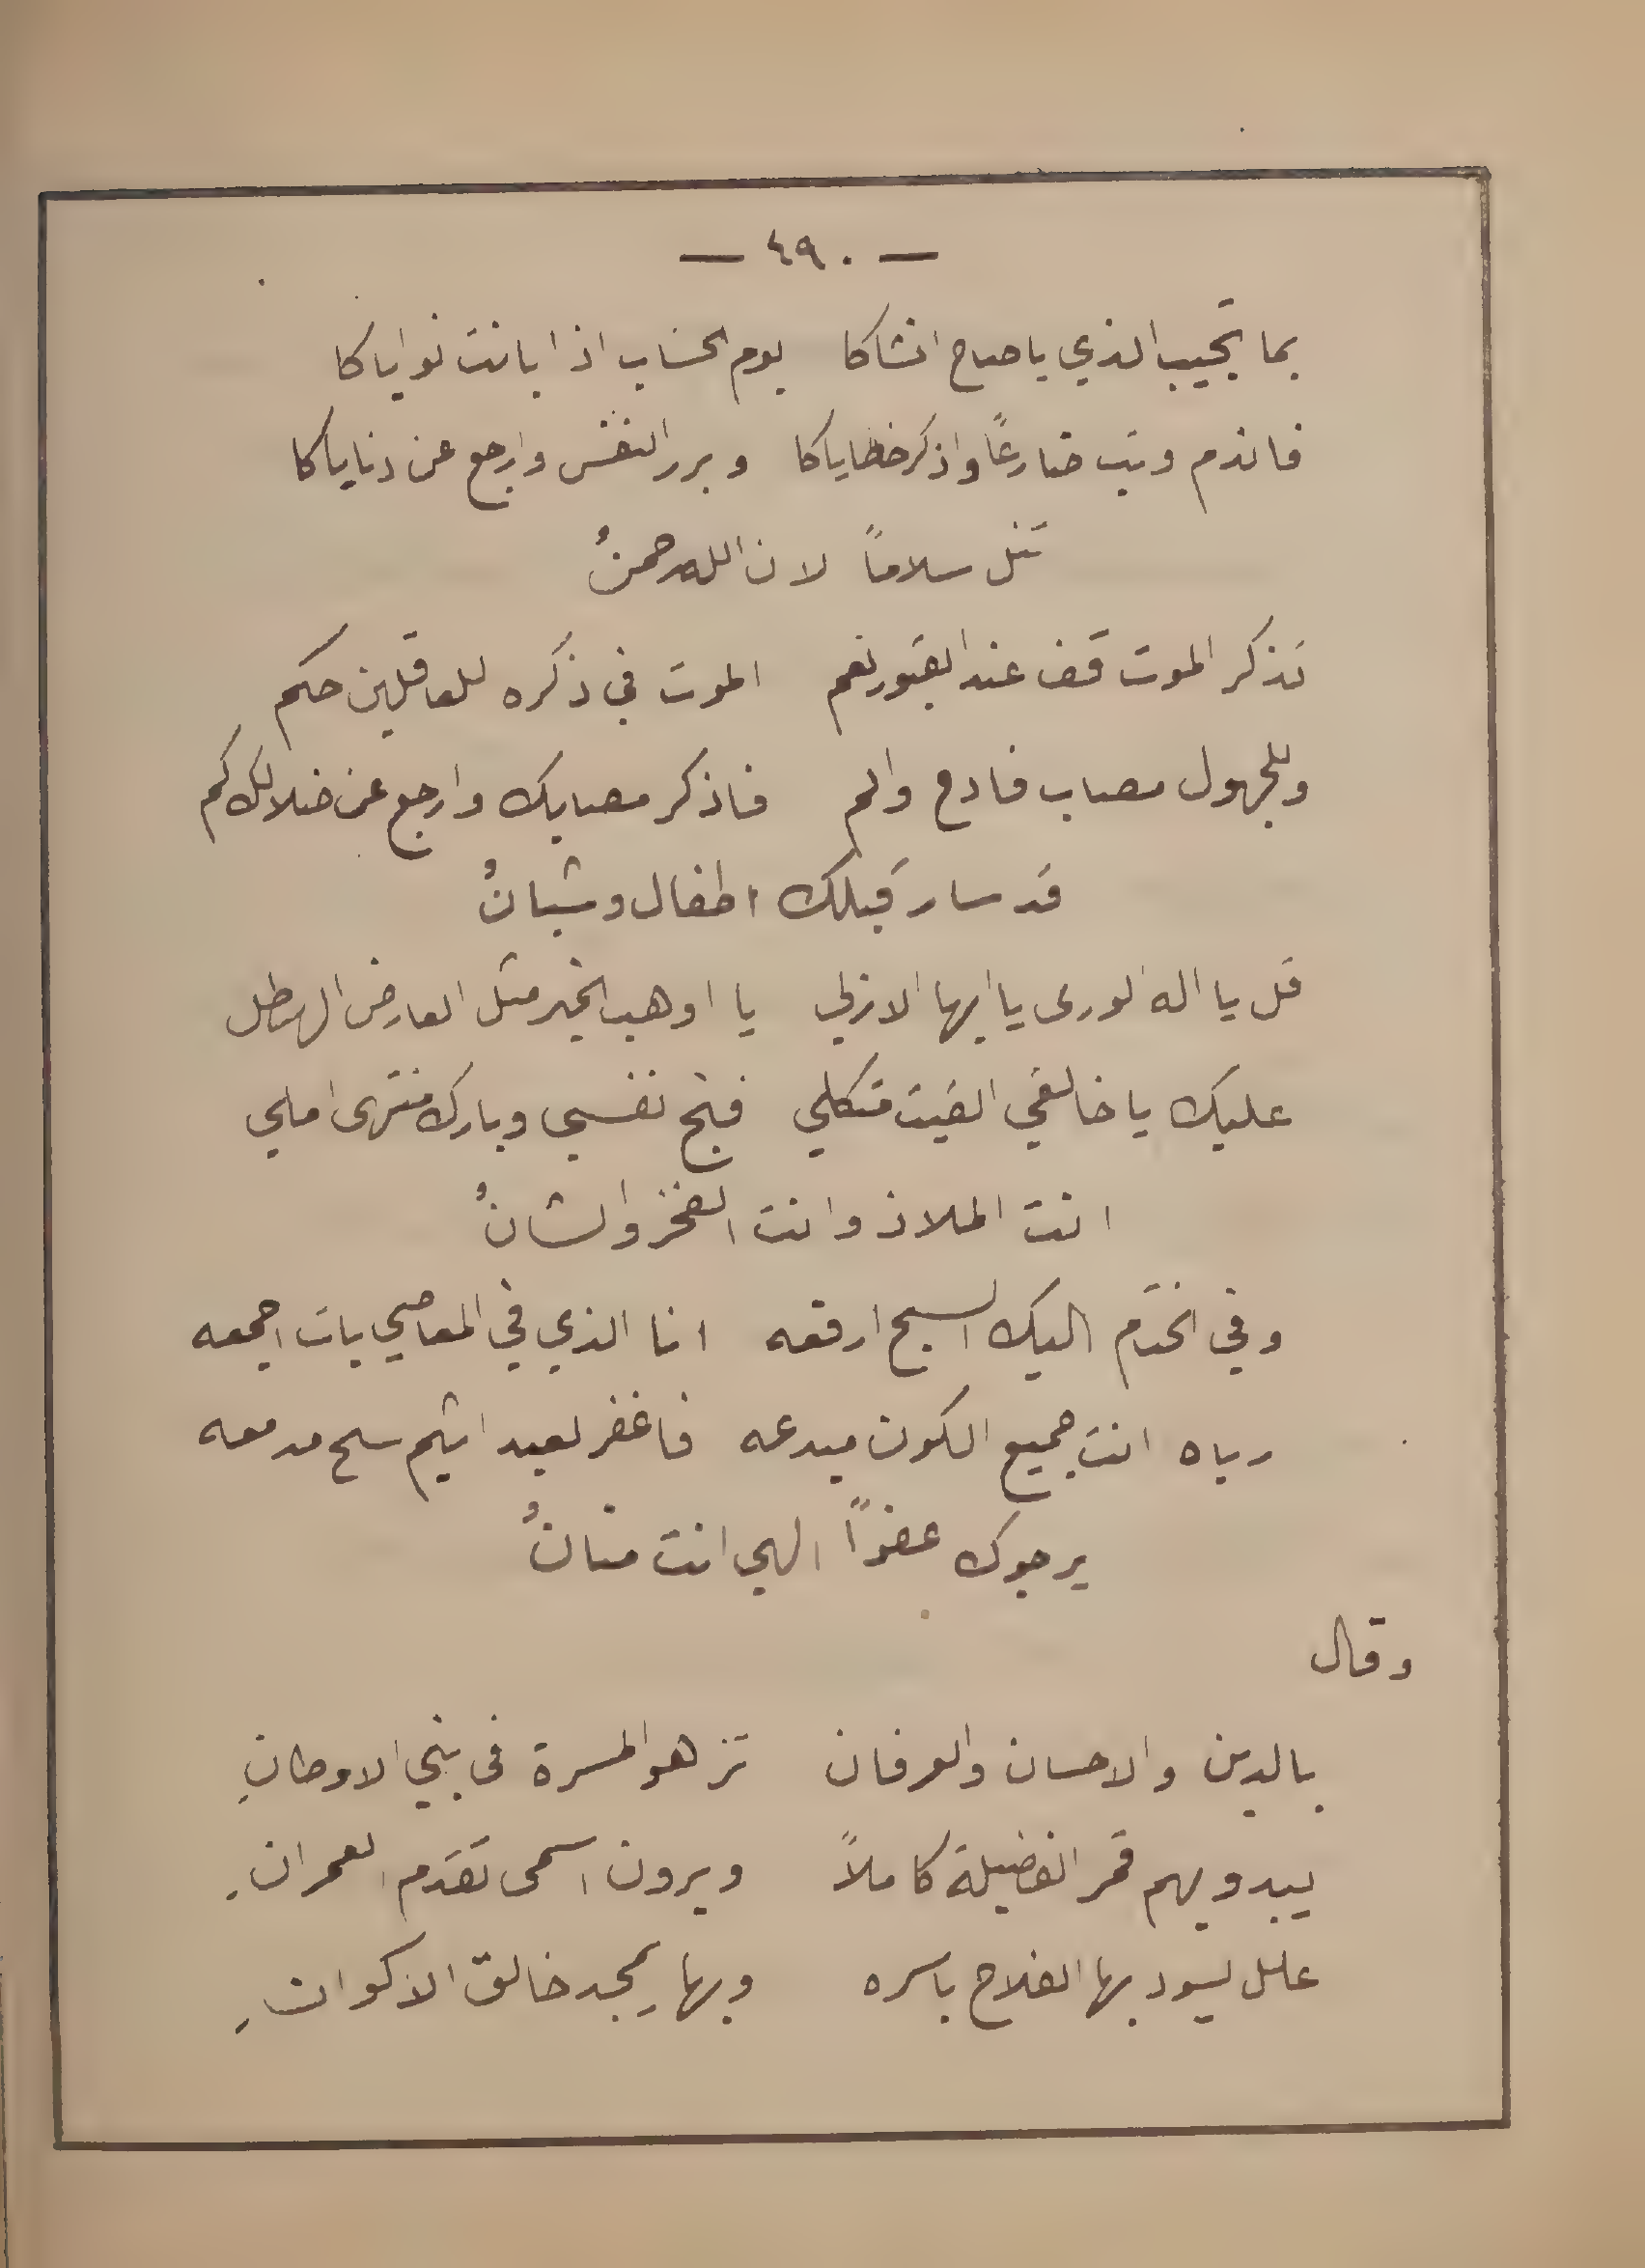 — ٤٩٠ —
بما تجيب الذي يا صاح انشاكا يوم الحساب اذا بانت نواياكا
فاندم وتب ضارعًا واذكر خطاياكا وبرر النفس وارجع عن دناياكا
تنل سلاماً لان الله رحمنُ
تذكر الموت قف عند القبور نعم الموت في ذكره للعاقلين حكم
وللجهول مصاب فادح والم فاذكر مصابك وارجع عن ضلالك كم
قد سار قبلك اطفال وشبانُ
قل يا اله الورى يا ايها الازلي يا اوهب الخير مثل العارض الهطل
عليك يا خالقي القيت متكلي فنج نفسي وبارك منتهى املي
انت الملاذ وانت الفخر والشانُ
وفي الختم اليك السبح ارفعه انا الذي في المعاصي بات اجمعه
رباه انت جميع الكون مبدعه فاغفر لعبد اثيم سح مدمعه
يرجوك عفوًا الهي انت منانُ
وقال
بالدين والاحسان والعرفان تزهو المسرة في بني الاوطانِ
يبدو بهم قمر الفضيلة كاملاً ويرون اسمى تقدم العمرانِ
علل يسود بها الفلاح باسره وبها يمجد خالق الاكوانِ